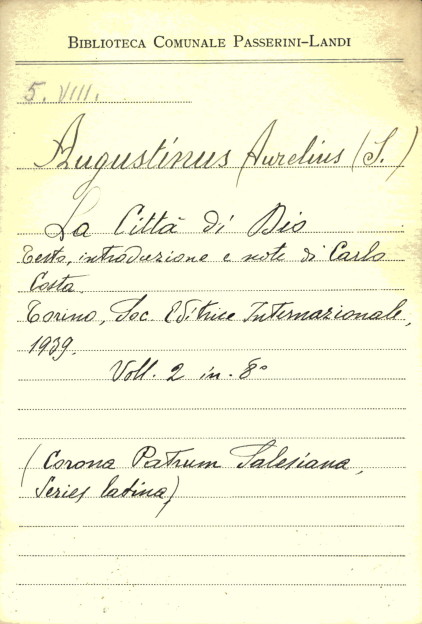 BIBLIOTECA COMUNALE PASSERINI-LANDI
5. VIII.
Augustinus Aurelius (S.)
La Città di Dio
Testo, introduzione e note di Carlo
Costa.
Torino, Soc. Editrice Internazionale,
1939.
Voll. 2 in-8°
(Corona Patrum Salesiana,
Series latina)